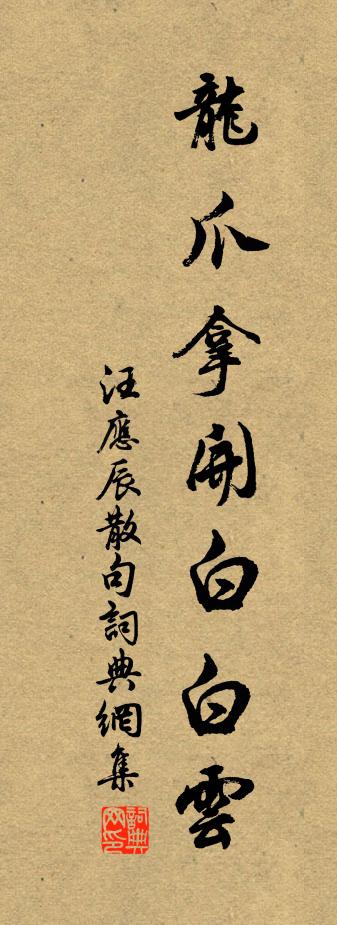 龍爪拿開白白雲
汪應辰散句詞典網集
詞典网印